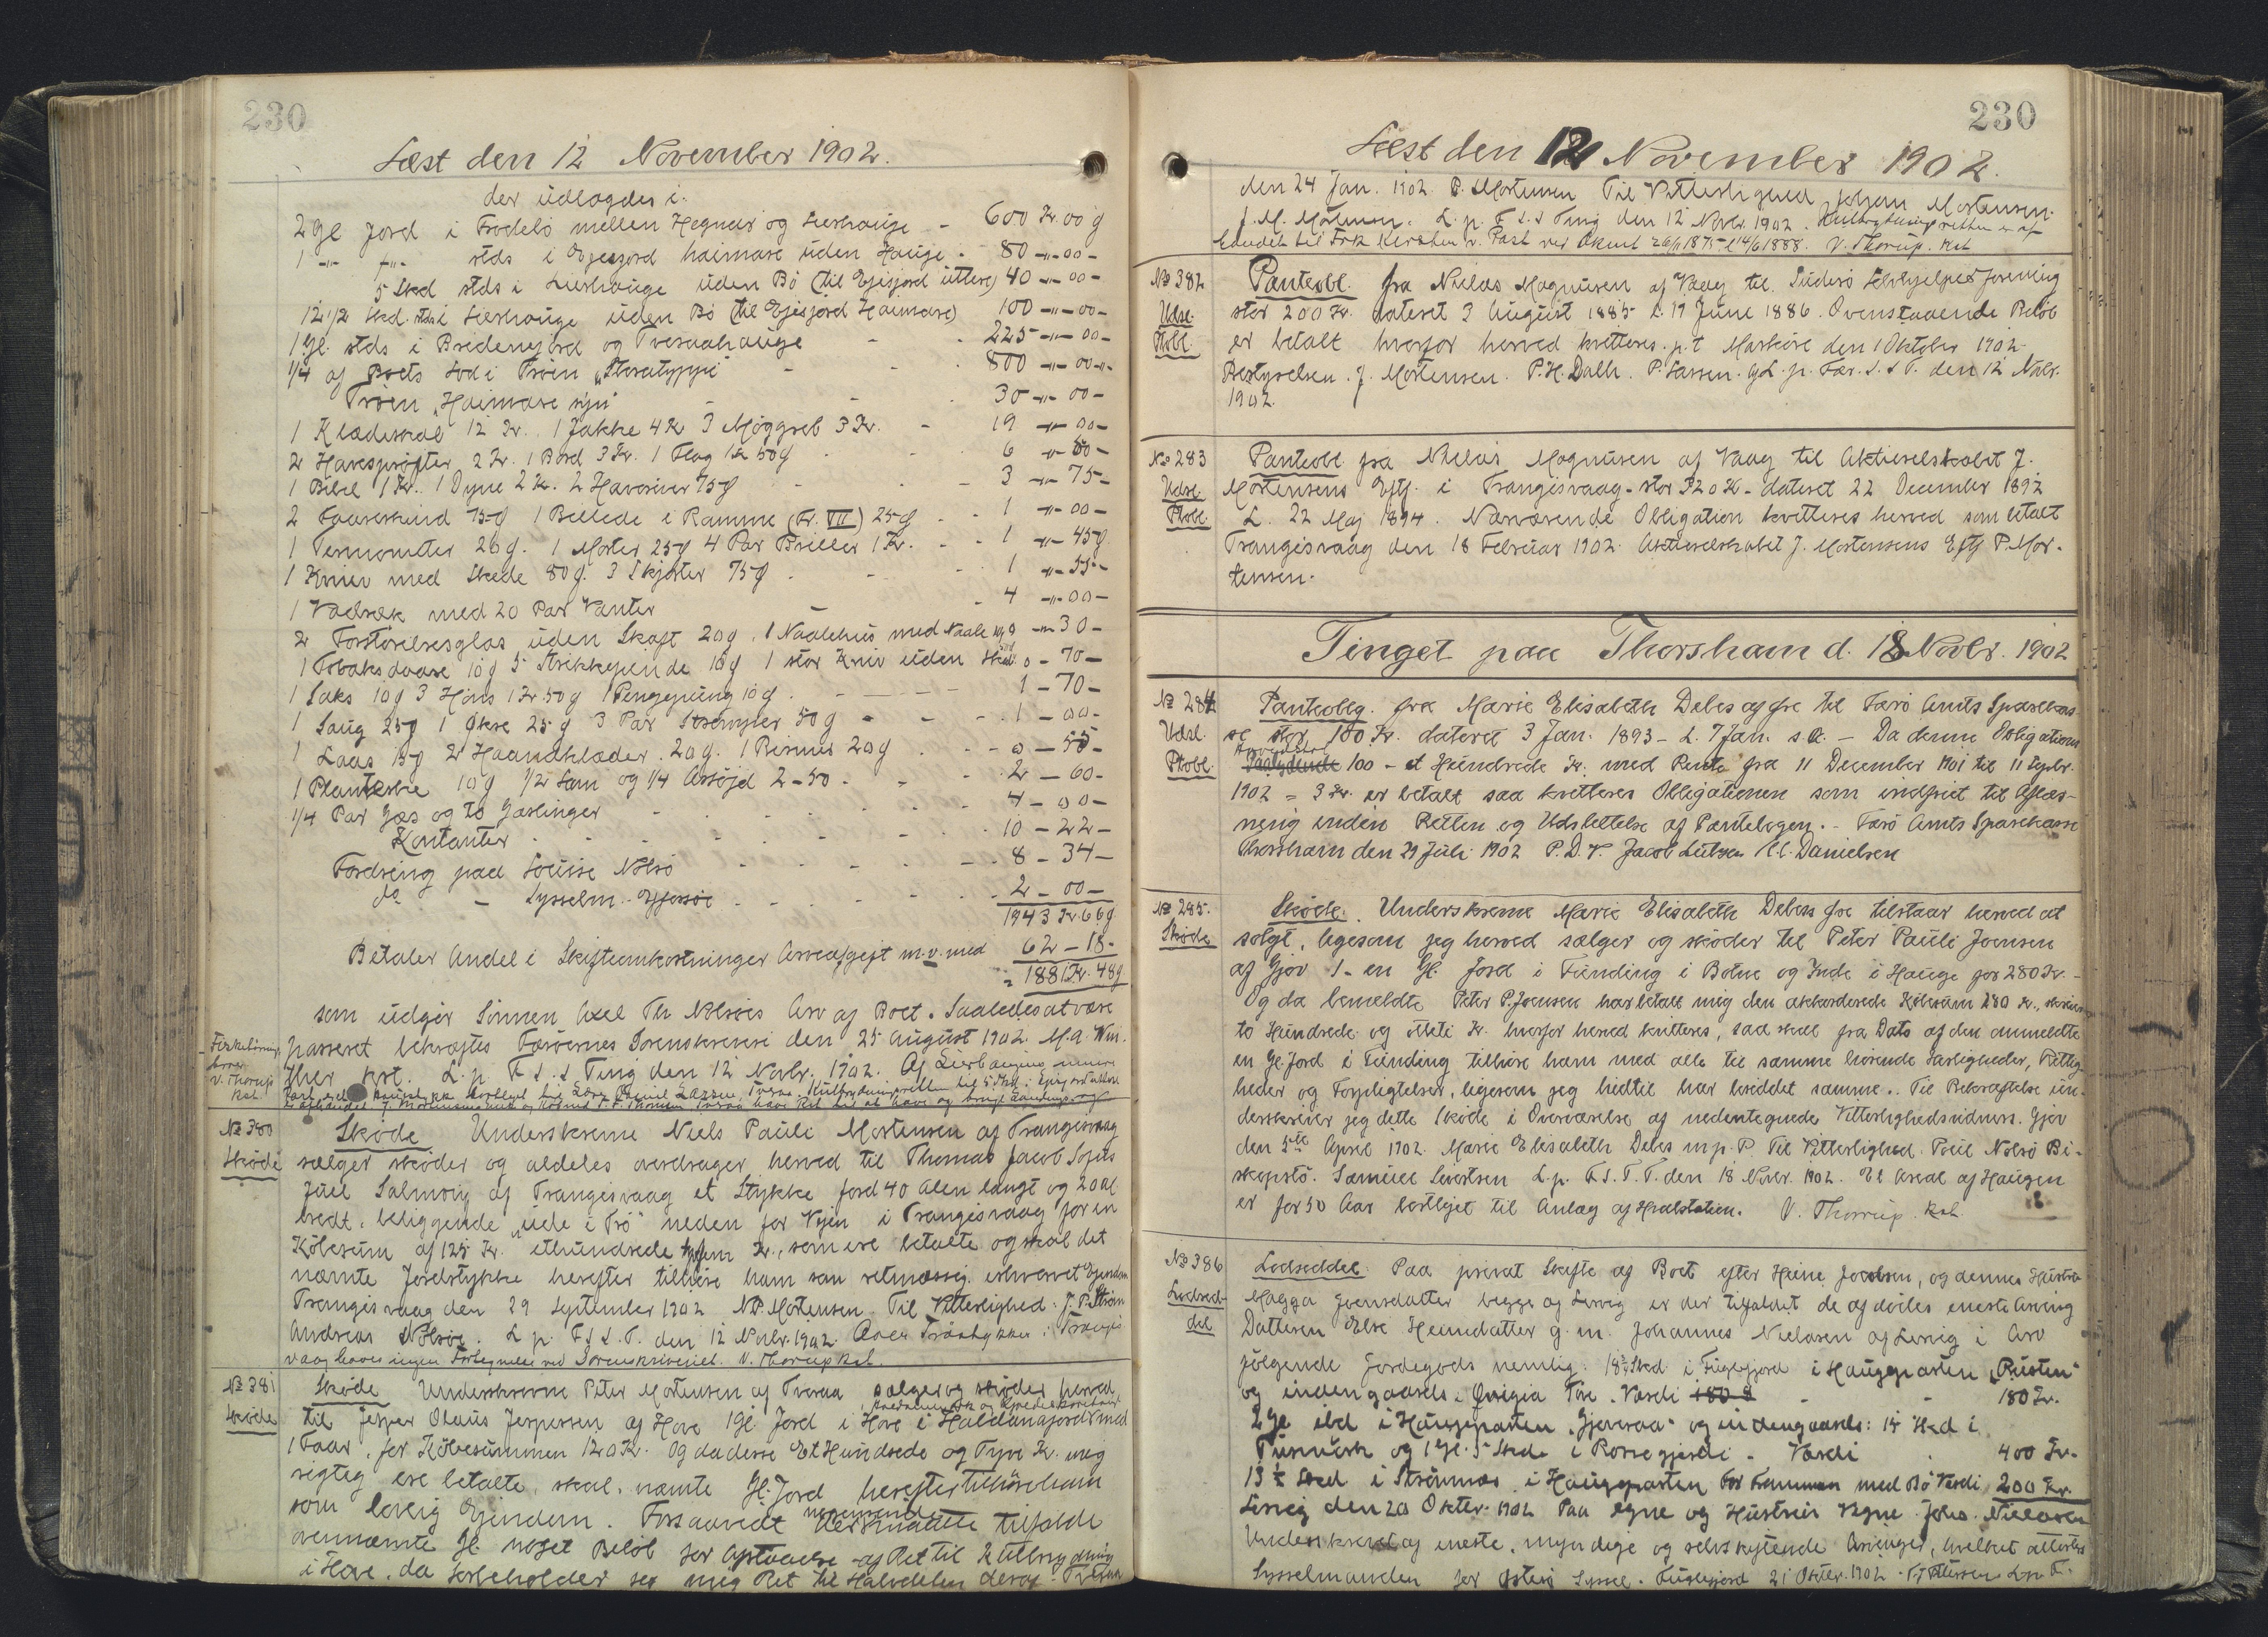 230
Læst den 12 November 1902.
der udlagdes i.
2 Gl Jord i Frodebö mellem Hegnar og Liershauge - 600 Kr. 00 g
1 -"- -"- stds i Ejesjord haimare uden Hauge - 80 -"- 00 -
5 Skd stds i Liershauge uden Bö (til Ejesjord uttere) 40 -"- 00 -
12 1/2 Skd. stds i Liershauge uden Bö (til Ejesjord Haimare) 100 -"- 00 -
1 Gl. stds i Bredenjord og Tveraahauge - 225 -"- 00 -
1/4 af Boets Lod i Tröen "Storatyppi - 800 -"- 00 -"-
Tröen "Haimare syn" - 30 -"- 00 -
1 Klædeskab 12 Kr. 1 Jakke 4 Kr 3 Möggreb 3 Kr. - 19 -"- 00 -
2 2 Kr. 1 Bord 3 Kr. 1 Flag 1 Kr 50 g 6 -"- 50 -
1 Bibel 1 Kr. 1 Dyne 2 Kr. 2 75 g - 3 -"- 75 -
2 Faareskind 75 g 1 Billede i Ramme (Fr. VII) 25 g - 1 -"- 00 -
1 Termometer 20 g. 1 Morter 25 g 4 Par Briller 1 Kr. - 1 -"- 45 g
1 Kniv med Skede 80 g. 3 Skjorter 75 g - 1 -"- 55 -
1 Vadsæk med 20 Par Vanter - 4 -"- 00 -
2 Forstörelsesglas uden Skaft 20 g. 1 Naalehus med Naale 10 g -"- 30 -
1 Tobaksdaase 10 g 5 Strikkepinde 10 g 1 stor Kniv uden Skd. 0 - 70 -
1 Saks 10 g 3 Höns 1 Kr. 50 g 1 Pengepung 10 g. - 1 - 70 -
1 Saug 25 g 1 Økse 25 g 3 Par 50 g - 1 - 00 -
1 Laas 15 g 2 Haandklæder 20 g. 1 Bismer 20 g - 0 - 55 -
1 10 g 1/2 Lam og 1/4 2 - 50 - 2 - 60 -
1/4 Par Gæs og to Gæslinger - 4 - 00 -
Kontanter - 10 - 22 -
Fordring paa Louise Nolsö - 8 - 34 -
do - Sysselm. - 2 - 00 -
1943 Kr. 66 g
Betaler Andel i Skifteomkostninger Arveafgift m.v. med 62 - 18 -
= 1881 Kr. 48 g
som udgör Sönnen Axel Th Nolsöes Arv af Boet. Saaledes at være
passeret bekræftes Færöernes Sorenskriveri den 25 August 1902. M.A. Win-
ther kst. L. p. F. S. S Ting den 12 Novbr. 1902. Af
V. Thorup
Kst.
No 380
Skøde
Skøde Underskrevne Niels Pauli Mortensen af Trangisvaag
sælger skøder og aldeles overdrager herved til Thomas Jacob Sofus
Juul Salmoig af Trangisvaag et Stykke Jord 40 Alen langt og 20 Al
bredt, beliggende "ude i Trö" neden for Vejen i Trangisvaag for en
Köbesum af 125 Kr. ethundrede Kr., som ere betalte og skal det
nævnte Jordstykke herefter tilhöre ham som retmæssig erhvervet Ejendom
Trangisvaag den 29 September 1902 N P Mortensen Til Vitterlighed: J. P. Ström
Andreas Nolsöe. L. p. F. S. S. T. den 12 Novbr. 1902. Over Tröstykker i Trangis
vaag haves ingen Fortegnelse ved Sorenskriveriet. V. Thorup Kst.
No 381
Skøde
Skøde Underskrevne Peter Mortensen af Tveraa sælger og skøder herved
til Jesper Olaus Jespersen af Hove 1 Gl. Jord i Hove i med
1 Faar, for Köbesummen 120 Kr. Og da disse Et Hundrede og Tyve Kr. mig
rigtig ere betalte, skal nævnte Gl. Jord herefter tilhöre ham
som lovlig Ejendom. Forsaavidt nogensinde tilfalde
ovennævnte Gl. noget Belöb for Afstaaelse af Ret til Kulbrydning
i Hove, da forbeholder jeg mig Ret til Halvdelen deraf. Tveraa
230
Læst den 12 November 1902.
den 24 Jan. 1902. P. Mortensen Til Vitterlighed Johan Mortensen
J. M. Mortensen. L. p. F. S. S Ting den 12 Novbr. 1902. Kulbrydningsretten er af
hændet til Frk Kirstine v. Past ved Skøde V. Thorup. Kst
No 382
Udsl.
Ptobl.
Panteobl. fra Nielas Magnusen af Vaag til Suderö Selvhjelpes Forening
stor 200 Kr. dateret 3 August 1885 l. 17 Juni 1886. Ovenstaaende Belöb
er betalt hvorfor herved kvitteres. p.t Marköre den 1 Oktober 1902
Bestyrelsen. J. Mortensen. P. H. Dalh. P. Lassen. L. p. Fær. S. S T. den 12 Novbr.
1902.
No 283
Udsl.
Ptobl.
Panteobl. fra Nielas Magnusen af Vaag til Aktieselskabet J.
Mortensens Eftf. i Trangisvaag - stor 520 Kr. - dateret 22 December 1892
L. 22 Maj 1894. Nærværende Obligation kvitteres herved som betalt
Trangisvaag den 18 Februar 1902. Aktieselskabet J. Mortensens Eftf P. Mor-
tensen.
Tinget paa Thorshavn d. 18 Novbr. 1902
No 284
Udsl.
Ptobl.
Panteoblg. fra Marie Elisabeth Debes af Gre til Færö Amts Sparekas-
se stor 100 Kr. dateret 3 Jan. 1893 - L. 7 Jan. s.a. - Da denne Obligations
100 - et Hundrede Kr. med Rente fra 11 December 1901 til 11 Septbr.
1902 = 3 Kr. er betalt saa kvitteres Obligationen som indfriet til Aflæs-
ning inden Retten og Udslettelse af Pantebogen. - Færö Amts Sparekasse
Thorshavn den 29 Juli 1902 P. D. V. Jacob Lützen C.C. Danielsen
No 285.
Skøde
Skøde. Underskrevne Marie Elisabeth Debes Gre tilstaar herved at
solgt, ligesom jeg herved sælger og skøder til Peter Pauli Joensen
af Gjov 1 - en Gl. Jord i Funding i Botne og Inde i Hauge for 280 Kr. -
Og da bemeldte Peter P. Joensen har betalt mig den akkorderede Köbesum 280 Kr., skriver
to Hundrede og otteti Kr. hvorfor herved kvitteres, saa skal fra Dato af den ommeldte
en Gl. Jord i Funding tilhöre ham med alle til samme hörende Herligheder, Rettig-
heder og Forpligtelser, ligesom jeg hidtil har besiddet samme. Til Bekræftelse un-
derskriver jeg dette Skøde i Overværelse af nedentegnede Vitterlighedsvidners. Gjov
den 5te April 1902. Marie Elisabeth Debes m.p.P. Til Vitterlighed. Poul Nolsö Bi-
skopstö. Samuel Sivertsen L. p. F. S. T. T. den 18 Novbr. 1902. Et Areal af Haugen
er for 50 Aar bortlejet til Anlæg af Hvalstation. V. Thorup. Kst
No 386
Lodsed-
del
Lodseddel. Paa privat Skifte af Boet efter Heine Jacobsen, og dennes Hustru
Magga Joensdatter begge af Lervig er der tilfaldet de afdödes eneste Arving
Datteren Else Heinedatter g. m. Johannes Nielasen af Lervig i Arv
fölgende Jordegods nemlig: 18 3/4 Skd i Fuglefjord i Haugparten "Rusten"
og indengaards. Værdi 180 Kr.
2 Gl ibd i Haugeparten "Gjerraa" og indengaards: 15 Skd i
og 1 Gl. 5 Skd i Værdi 400 Kr.
13 1/2 Skd i Strömnæs i Haugparten For Frammen med Bö Værdi 200 Kr.
Lervig den 20 Oktbr. 1902 Paa egne og Hustrus Vegne Johs. Nielasen
Underskrevet af eneste, myndige og selvskyldende Arvinger, hvilket attesteres
Sysselmanden for Østerö Syssel. Fuglefjord 21 Oktbr. 1902